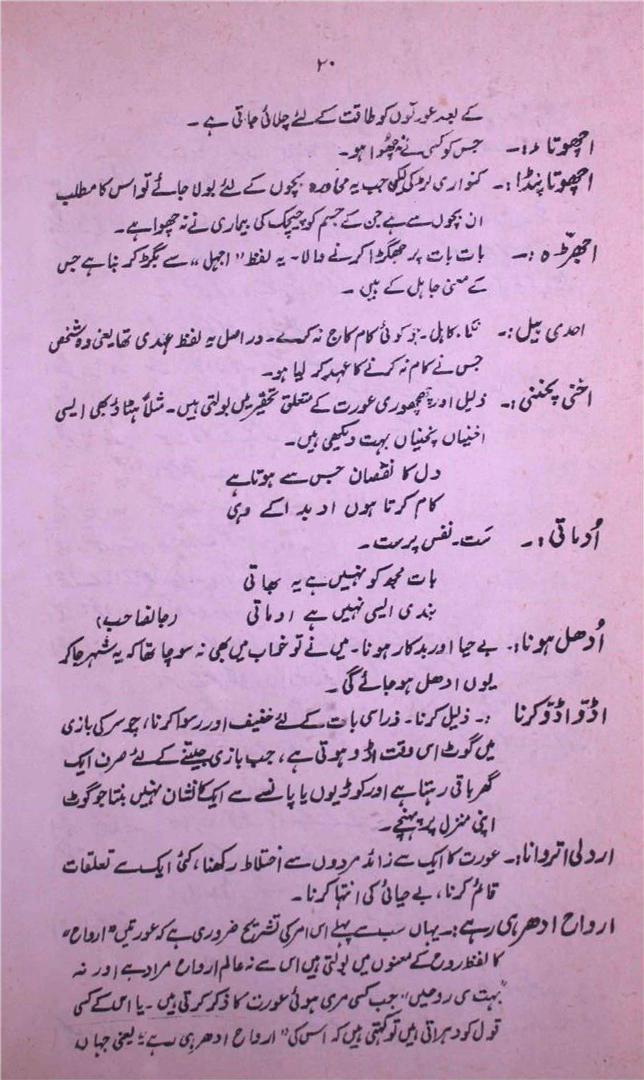 ۲۰
کے بعد عورتوں کو طاقت کے لئے چٹائی جاتی ہے۔
اچھوتا :۔ جس کو کسی نے نہ چھوا ہو۔
اچھوتا پنڈا :۔ کنواری لڑکی لیکن جب یہ محاورہ بچوں کے لئے بولا جائے تو اس کا مطلب
ان بچوں سے ہے جن کے جسم کو چیچک کی بیماری نے نہ چھوا ہے۔
اجھڑہ :۔ بات بات پر جھگڑا کرنے والا۔ یہ لفظ "اجہل" سے بگڑ کر بنا ہے جس
کے معنی جاہل کے ہیں۔
احدی بیل :۔ نکما، کاہل۔ جو کوئی کام کاج نہ کرے۔ دراصل یہ لفظ عہدی تھا یعنی وہ شخص
جس نے کام نہ کرنے کا عہد کر لیا ہو۔
اخنی پخنی :۔ ذلیل اور چھچھوری عورت کے متعلق تحقیر میں بولتی ہیں۔ مثلاً ہٹاؤ بھی ایسی
اخنیاں پخنیاں بہت دیکھی ہیں۔
دل کا نقصان جس سے ہوتا ہے
کام کرتا ہوں ادبدا کے وہی
اُدماتی :۔ مست۔ نفس پرست۔
بات مجھ کو نہیں ہے یہ بھاتی
بندی ایسی نہیں ہے ادماتی (جانصاحب)
اُدھل ہونا :۔ بے حیا اور بدکار ہونا۔ میں نے تو خواب میں بھی نہ سوچا تھا کہ یہ شہر جا کر
یوں ادھل ہو جائے گی۔
اڈّو اڈّو کرنا :۔ ذلیل کرنا۔ ذرا سی بات کے لئے خفیف اور رسوا کرنا، چوسر کی بازی
میں گوٹ اس وقت اڈّو ہوتی ہے، جب بازی جیتنے کے لئے صرف ایک
گھر باقی رہتا ہے اور کوڑیوں یا پانسے سے ایک کا نشان نہیں بنتا جو گوٹ
اپنی منزل پر پہنچے۔
اردلی اتروانا :۔ عورت کا ایک سے زائد مردوں سے اختلاط رکھنا، کئی ایک سے تعلقات
قائم کرنا، بے حیائی کی انتہا کرنا۔
ارواح ادھر ہی رہے :۔ یہاں سب سے پہلے اس امر کی تشریح ضروری ہے کہ عورتیں "ارواح"
کا لفظ روح کے معنوں میں بولتی ہیں اس سے نہ عالم ارواح مراد ہے اور نہ
"بہت سی روحیں" جب کسی مری ہوئی عورت کا ذکر کرتی ہیں۔ یا اس کے کسی
قول کو دہراتی ہیں تو کہتی ہیں کہ اس کی "ارواح ادھر ہی رہے" یعنی جہاں